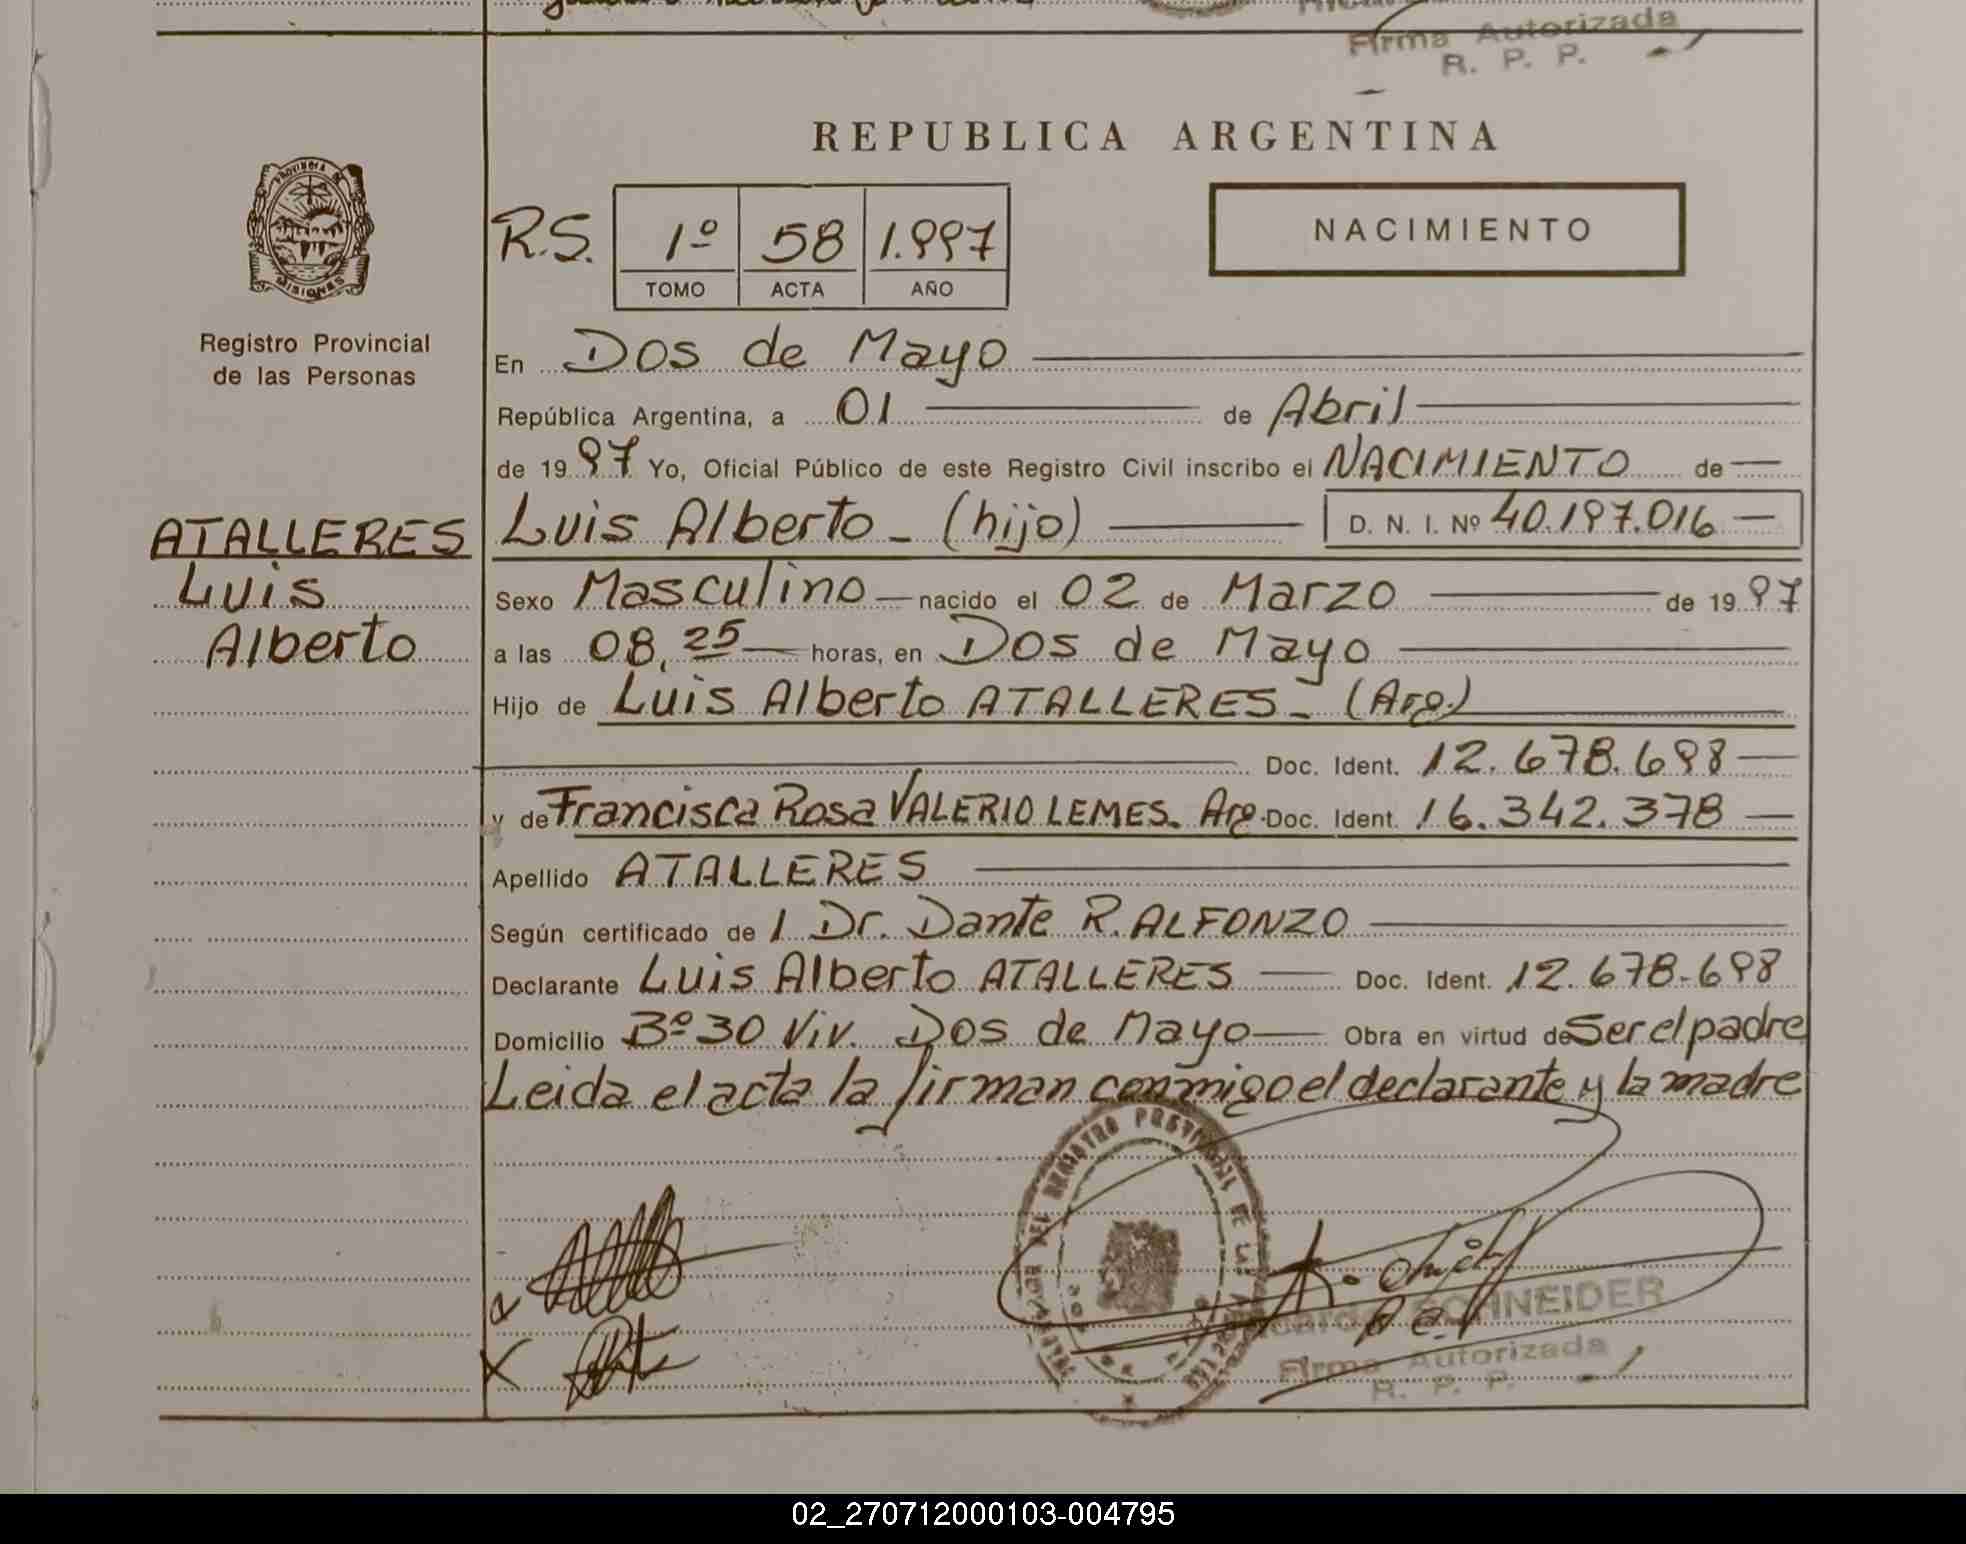 Firma Autorizada
R. P. P.
REPUBLICA ARGENTINA
PROVINCIA DE
MISIONES
Registro Provincial
de las Personas
R.S. 1º 58 1.997
TOMO ACTA AÑO
NACIMIENTO
En Dos de Mayo
República Argentina, a 01 de Abril
de 1997 Yo, Oficial Público de este Registro Civil inscribo el NACIMIENTO de
ATALLERES
Luis
Alberto
Luis Alberto - (hijo) D. N. I. Nº 40.197.016
Sexo Masculino nacido el 02 de Marzo de 1997
a las 08,25 horas, en Dos de Mayo
Hijo de Luis Alberto ATALLERES - (Arg.)
Doc. Ident. 12.678.698
y de Francisca Rosa VALERIO LEMES. Arg. Doc. Ident. 16.342.378
Apellido ATALLERES
Según certificado de 1 Dr. Dante R. ALFONZO
Declarante Luis Alberto ATALLERES Doc. Ident. 12.678.698
Domicilio Bº 30 Viv. Dos de Mayo Obra en virtud de Ser el padre
Leida el acta la firman conmigo el declarante y la madre
SCHNEIDER
Firma Autorizada
R. P. P.
02_270712000103-004795